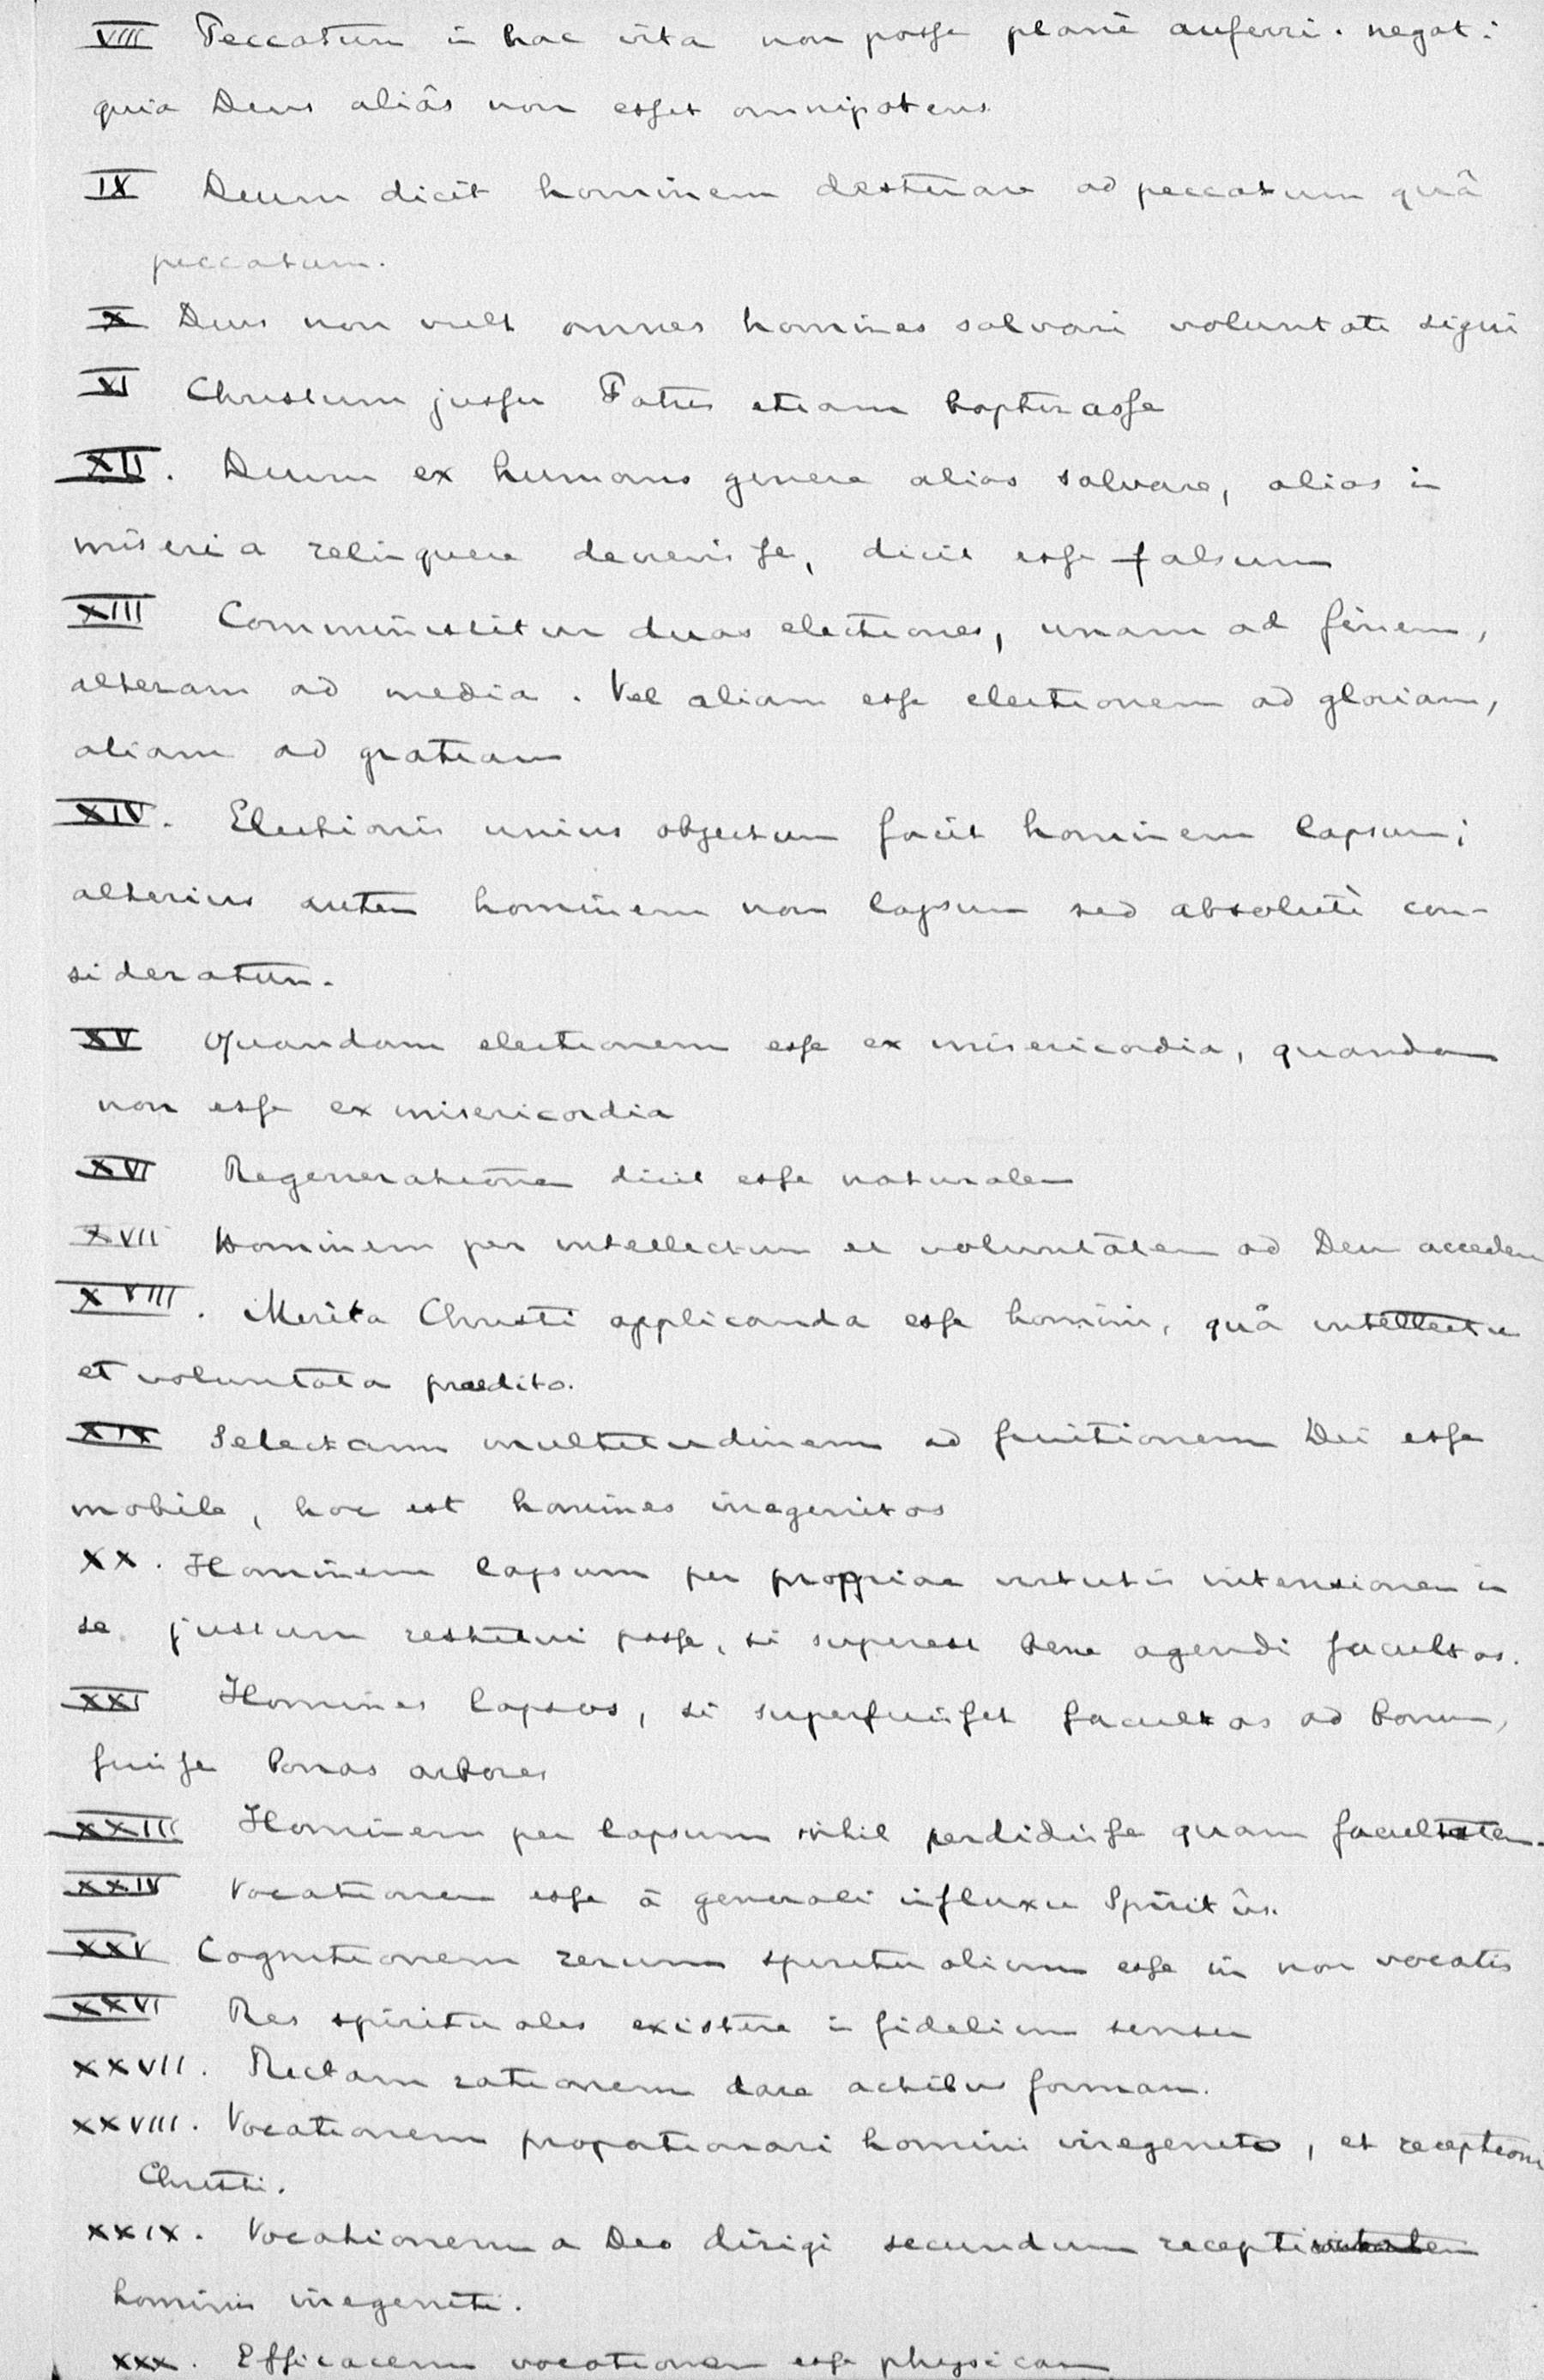 VIII Peccatum in hac vita non posse planè auferri. negat:
quia Deus aliâs non esset omnipotens.
IX Deum dicit hominem destinare ad peccatum quâ
peccatum.
X Deus non vult omnes homines salvari voluntate signi
XI Christum jussu Patris etiam baptizasse
XII. Deum ex humano genere alios salvare, alios in
miseria relinquere decrevisse, dicit esse falsum
XIII Comminiscitur duas electiones, unam ad finem,
alteram ad media. Vel aliam esse electionem ad gloriam,
aliam ad gratiam
XIV. Electionis unius objectum facit hominem lapsum;
alterius autem hominem non lapsum sed absolutè con-
sideratum.
XV Quandam electionem esse ex misericordia, quandam
non esse ex misericordia
XVI Regenerationem dicit esse naturalem
XVII Hominem per intellectum et voluntatem ad Deum accedere
XVIII. Merita Christi applicanda esse homini, quâ intellectu
et voluntate praedito.
XIX Selectam multitudinem ad fruitionem Dei esse
mobile, hoc est homines irregenitos
XX. Hominem lapsum per propriae virtutis intensionem in
se justum restitui posse, si superest bene agendi facultas.
XXI Homines lapsos, si superfuisset facultas ad bonum,
fuisse bonas arbores
XXIII Hominem per lapsum nihil perdidisse quam facultatem.
XXIV Vocationem esse à generali influxu Spiritûs.
XXV Cognitionem rerum spiritualium esse in non vocatis
XXVI Res spirituales existere in fidelium sensu
XXVII. Rectam rationem dare actibus formam.
XXVIII. Vocationem proportionari homini irregenito, et receptioni
Christi.
XXIX. Vocationem a Deo dirigi secundum receptivitatem
hominis irregeniti.
XXX. Efficacem vocationem esse physicam